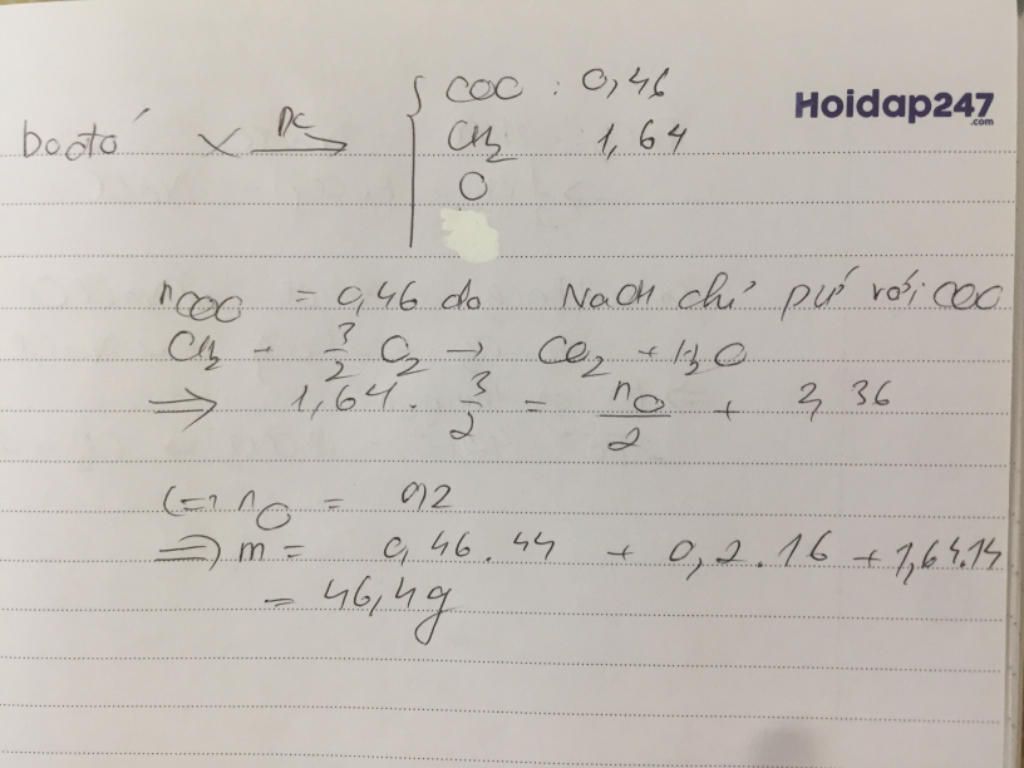 Hoidap247
.com
bđtđ X ĐC → { COO : 0,46
CH2 1,64
O
nCOO = 0,46 do NaOH chỉ pứ với COO
CH2 + 3/2 O2 → CO2 + H2O
⇒ 1,64 . 3/2 = nO/2 + 2,36
(=) nO = 0,2
⇒ m = 0,46.44 + 0,2.16 + 1,64.14
= 46,4g